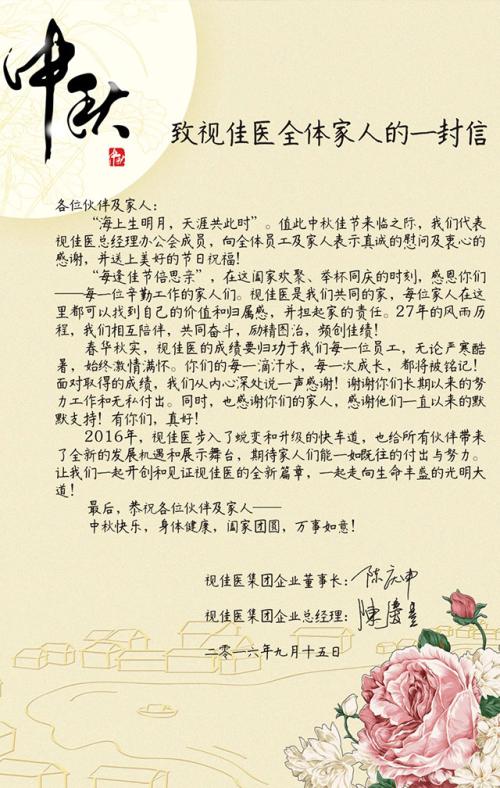 中秋
中秋
致视佳医全体家人的一封信
各位伙伴及家人：
“海上生明月，天涯共此时”。值此中秋佳节来临之际，我们代表
视佳医总经理办公会成员，向全体员工及家人表示真诚的慰问及衷心的
感谢，并送上美好的节日祝福！
“每逢佳节倍思亲”，在这阖家欢聚、举杯同庆的时刻，感恩你们
——每一位辛勤工作的家人们。视佳医是我们共同的家，每位家人在这
里都可以找到自己的价值和归属感，并担起家的责任。27年的风雨历
程，我们相互陪伴，共同奋斗，励精图治，频创佳绩！
春华秋实，视佳医的成绩要归功于我们每一位员工，无论严寒酷
暑，始终激情满怀。你们的每一滴汗水，每一次成长，都将被铭记！
面对取得的成绩，我们从内心深处说一声感谢！谢谢你们长期以来的努
力工作和无私付出。同时，也感谢你们的家人，感谢他们一直以来的默
默支持！有你们，真好！
2016年，视佳医步入了蜕变和升级的快车道，也给所有伙伴带来
了全新的发展机遇和展示舞台，期待家人们能一如既往的付出与努力。
让我们一起开创和见证视佳医的全新篇章，一起走向生命丰盛的光明大
道！
最后，恭祝各位伙伴及家人——
中秋快乐，身体健康，阖家团圆，万事如意！
视佳医集团企业董事长：陈庆中
视佳医集团企业总经理：陳
二零一六年九月十五日